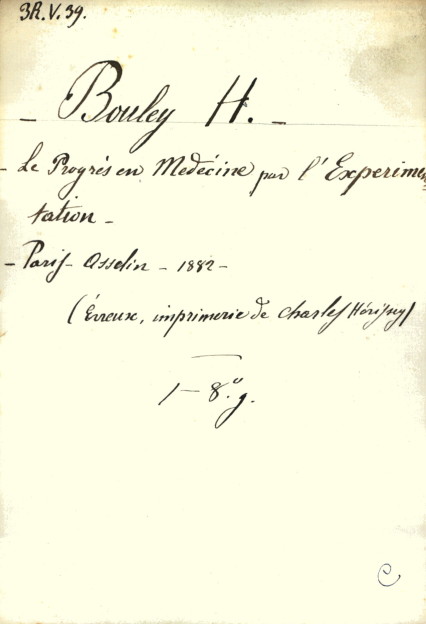 3R.V.39.
- Bouley H. -
- Le Progrés en Medécine par l'Experimen
tation -
- Paris - Asselin - 1882 -
(Évreux, imprimerie de Charles Hérissey)
1 - 8.º g.
C